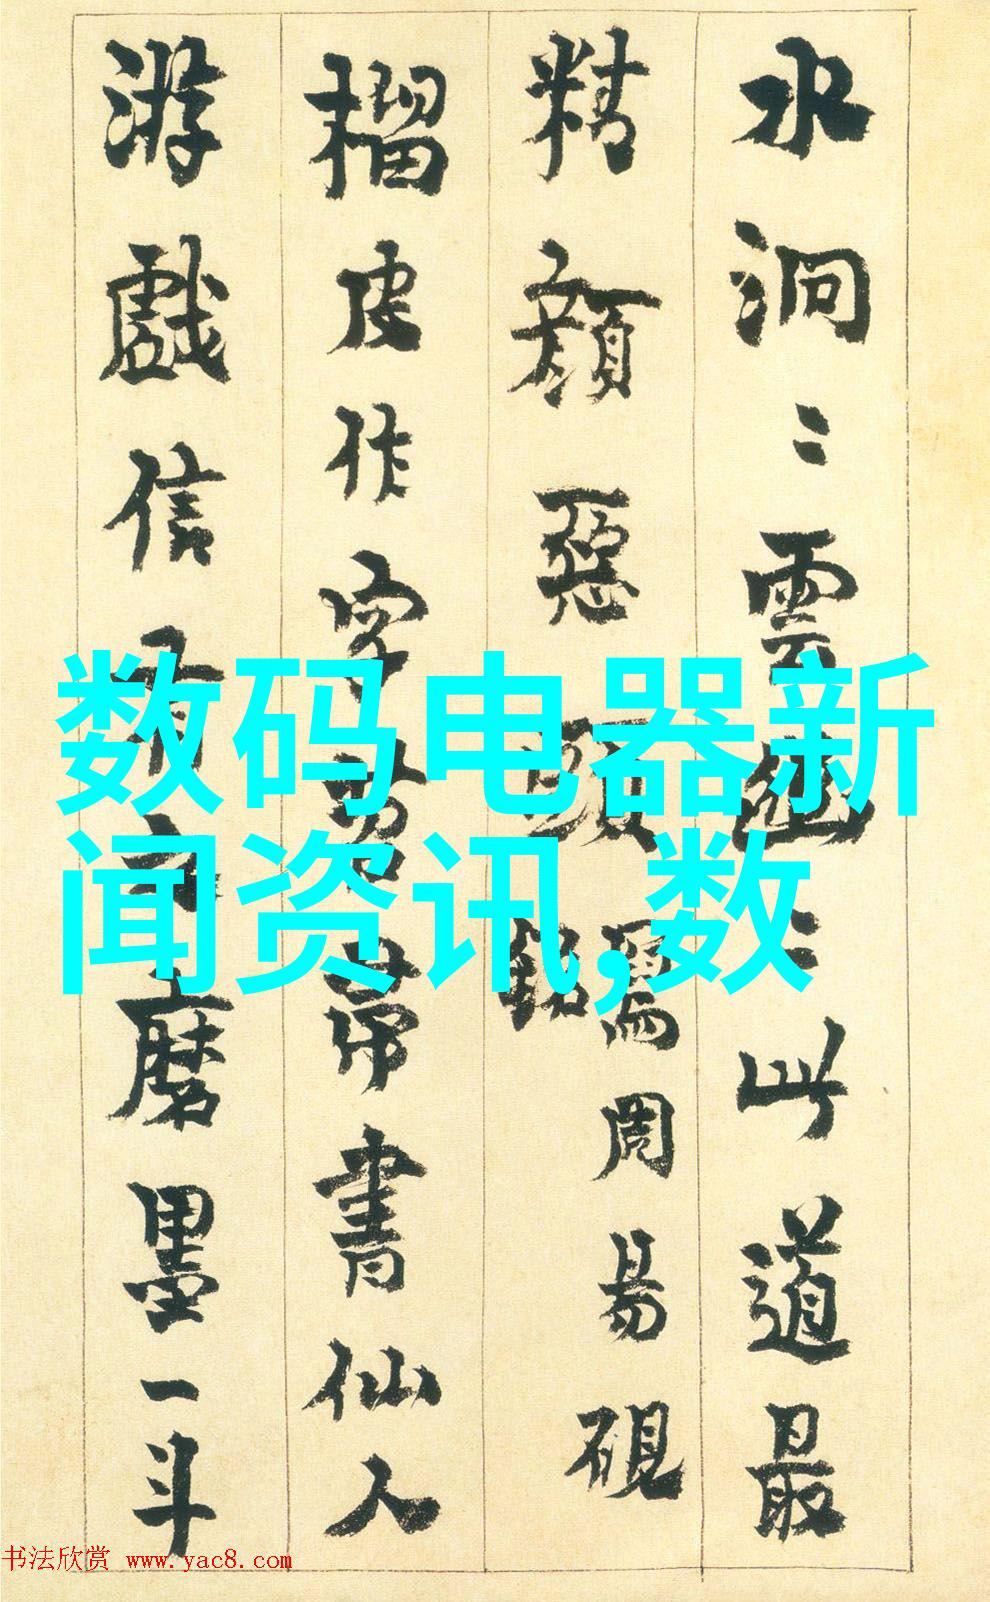 水洞〻雲幽〻此道最
精顏惡頭銘
寫周易硯
榴皮作字苕帚書仙人
游戲信有磨墨一斗
数码电器新
闻资讯,数
书法欣赏 www.yac8.com